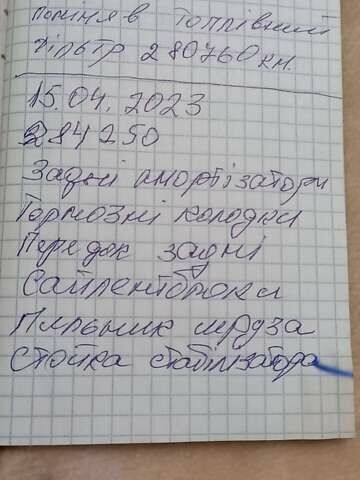 поміняв Топлівний
фільтр 280760 км.
15.04.2023
284250
Задні амортізатори
Тормозні колодки
Перѐдок задні
Сайлентблоки
Пильник шруза
Стойка стабілізатора